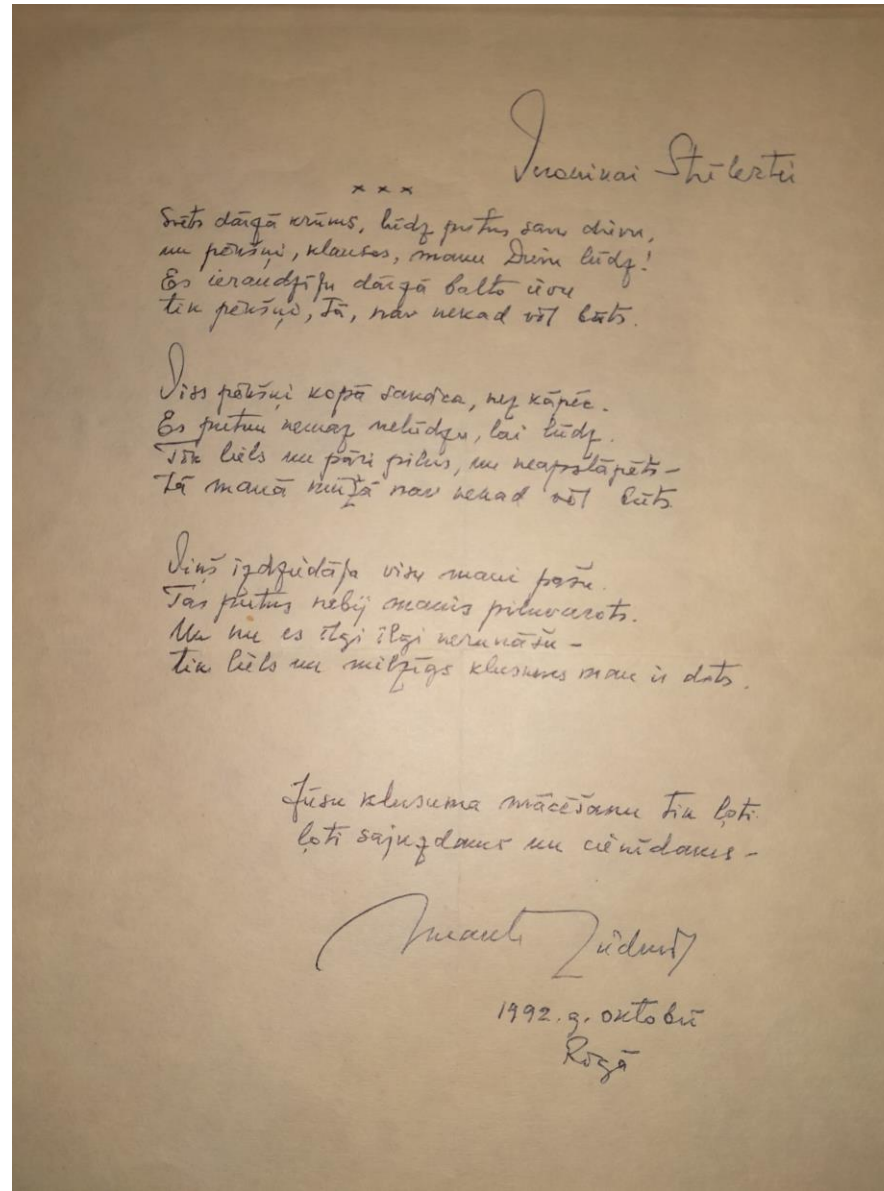 Veronikai Strēlertei
x x x
Svēts dārzā krūms, lūdz putns savu dievu,
un pēkšņi, klausos, manu Dievu lūdz!
Es ieraudzīju dārzā balto ievu
tik pēkšņi, tā, nav nekad vēl būts.
Viss pēkšņi kopā sanāca, nez kāpēc.
Es putnu nemaz nelūdzu, lai lūdz.
Tik liels un pāri pilns, un neapslāpēts –
tā manā mūžā nav nekad vēl būts
Viņš izdziedāja visu mani pašu.
Tas putns nebij manis pilnvarots.
Un nu es ilgi ilgi nerunāšu –
tik liels un milzīgs klusums man ir dots.
Jūsu klusuma mācēšanu tik ļoti
ļoti sajuzdams un cienīdams –
Imants Ziedonis
1992. g. oktobrī
Rīgā